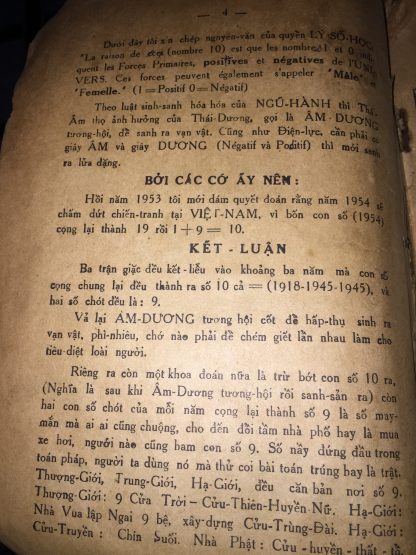 — 4 —
Dưới đây tôi xin chép nguyên-văn của quyển LÝ SỐ-HỌC
"La raison de (nombre 10) est que les nombres 1 et 0 indi-
quent les Forces Primaires, positives et négatives de l'UNI-
VERS. Ces forces peuvent également s'appeler "Mâle" et
"Femelle." (1=Positif 0=Négatif)
Theo luật sinh-sanh hóa hóa của NGŨ-HÀNH thì Thái
Âm thọ ảnh hưởng của Thái-Dương, gọi là ÂM-DƯƠNG
tương-hội, để sanh ra vạn vật. Cũng như Điện-lực, cần phải có
giây ÂM và giây DƯƠNG (Négatif và Positif) thì mới sanh
ra lửa đặng.
BỞI CÁC CỚ ẤY NÊN:
Hồi năm 1953 tôi mới dám quyết đoán rằng năm 1954 sẽ
chấm dứt chiến-tranh tại VIỆT-NAM, vì bốn con số (1954)
cọng lại thành 19 rồi 1+9= 10.
KẾT - LUẬN
Ba trận giặc đều kết-liễu vào khoảng ba năm mà con số
cọng chung lại đều thành ra số 10 cả = (1918-1945-1945), và
hai số chót đều là: 9.
Vả lại ÂM-DƯƠNG tương hội cốt để hấp-thụ sinh ra
vạn vật, phi-nhiêu, chớ nào phải để chém giết lẫn nhau làm cho
tiêu-diệt loài người.
Riêng ra còn một khoa đoán nữa là trừ bớt con số 10 ra,
(Nghĩa là sau khi Âm-Dương tương-hội rồi sanh-sản ra) còn
hai con số chót của mỗi năm cọng lại thành số 9 là số may-
mắn mà ai ai cũng chuộng, cho đến đỗi tầm nhà phố hay là mua
xe hơi, người nào cũng ham con số 9. Số nầy đứng đầu trong
toán pháp, người ta dùng nó mà thử coi bài toán trúng hay là trật.
Thượng-Giới, Trung-Giới, Hạ-Giới, đều căn bản nơi số 9.
Thượng-Giới: 9 Cửa Trời – Cửu-Thiên-Huyền-Nữ. Hạ-Giới:
Nhà Vua lập Ngai 9 bệ, xây-dựng Cửu-Trùng-Đài. Hạ-Giới:
Cửu-Truyền: Chín Suối. Nhà Phật: Cửu-huyền-thất-tổ